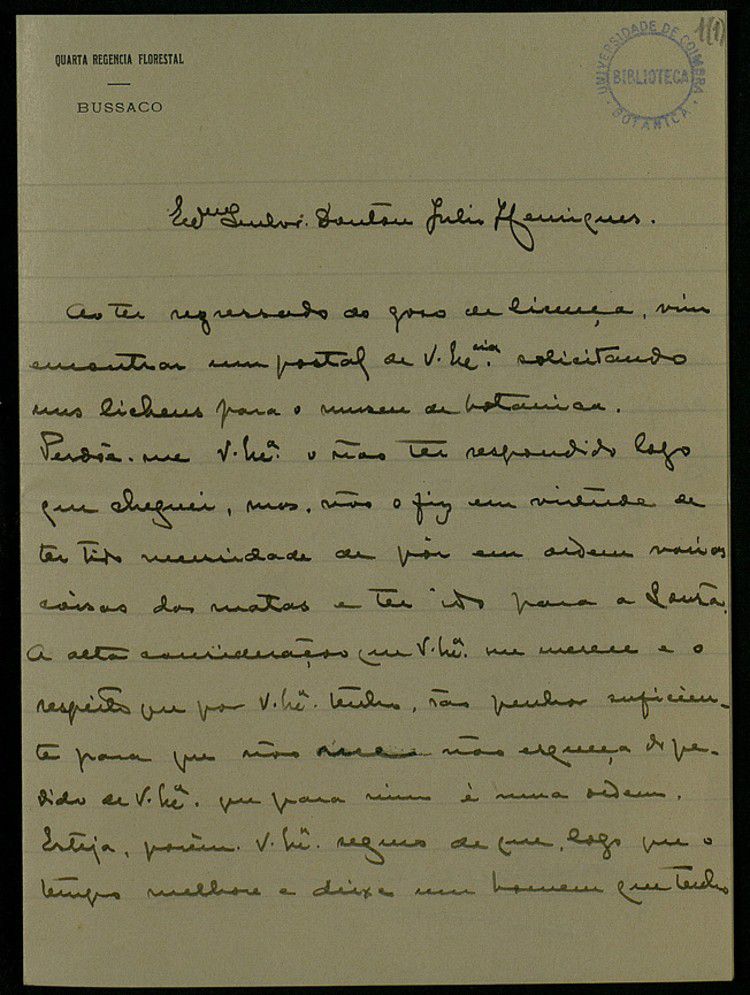 QUARTA REGENCIA FLORESTAL
BUSSACO
UNIVERSIDADE DE COIMBRA
BIBLIOTECA
BOTANICA
1(1)
Senhor. Doutor Julio Henriques.
Ao ter regressado do goso de licença, vim
encontrar um postal de V. solicitando
uns lichens para o museu de botanica.
Perdôe-me V. o não ter respondido logo
que cheguei, mas, não o fiz em virtude de
ter tido necessidade de pôr em ordem varias
coisas das matas e ter ido para a Louzã.
A alta consideração que V. me merece e o
respeito que por V. tenho, são penhor suficien-
te para que não não esqueça o pe-
dido de V. que para mim é uma ordem.
Esteja, porém. V. seguro de que, logo que o
tempo melhore e deixe um homem que tenho